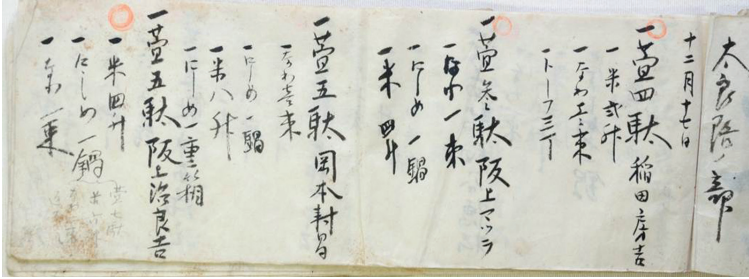 太良路ノ部
十二月十七日
一萱四駄 稲田房吉
一米弐升
一なわ壱束
一トーフ三丁
一萱参駄 阪上マツラ
一なわ一束
一にしめ一鍋
一米四升
一萱五駄 岡本
一なわ壱束
一にしめ一鍋
一米八升
一にしめ一重箱
一萱五駄 阪上治良吉
一米四升
一にしめ一鍋
一なわ一束